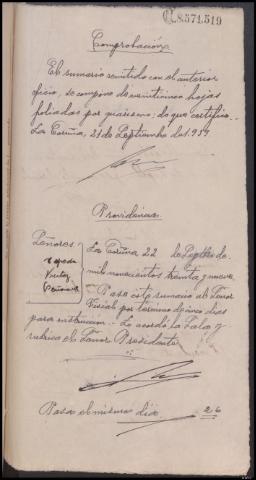 C.8.571.519
Comprobación
El sumario remitido con el anterior
oficio, se compone de veintiuna hojas
foliadas por guarismo: doy que certifico.
La Coruña, 21 de Septiembre de 1939
Providencia
Señores
La Coruña 22 de Septbre de
mil novecientos treinta y nueve.
Pase este sumario al Señor
Fiscal por termino de cinco dias
para instrucción. Lo acordó la Sala y
rubrica el Señor Presidente
Pasa el mismo dia 26